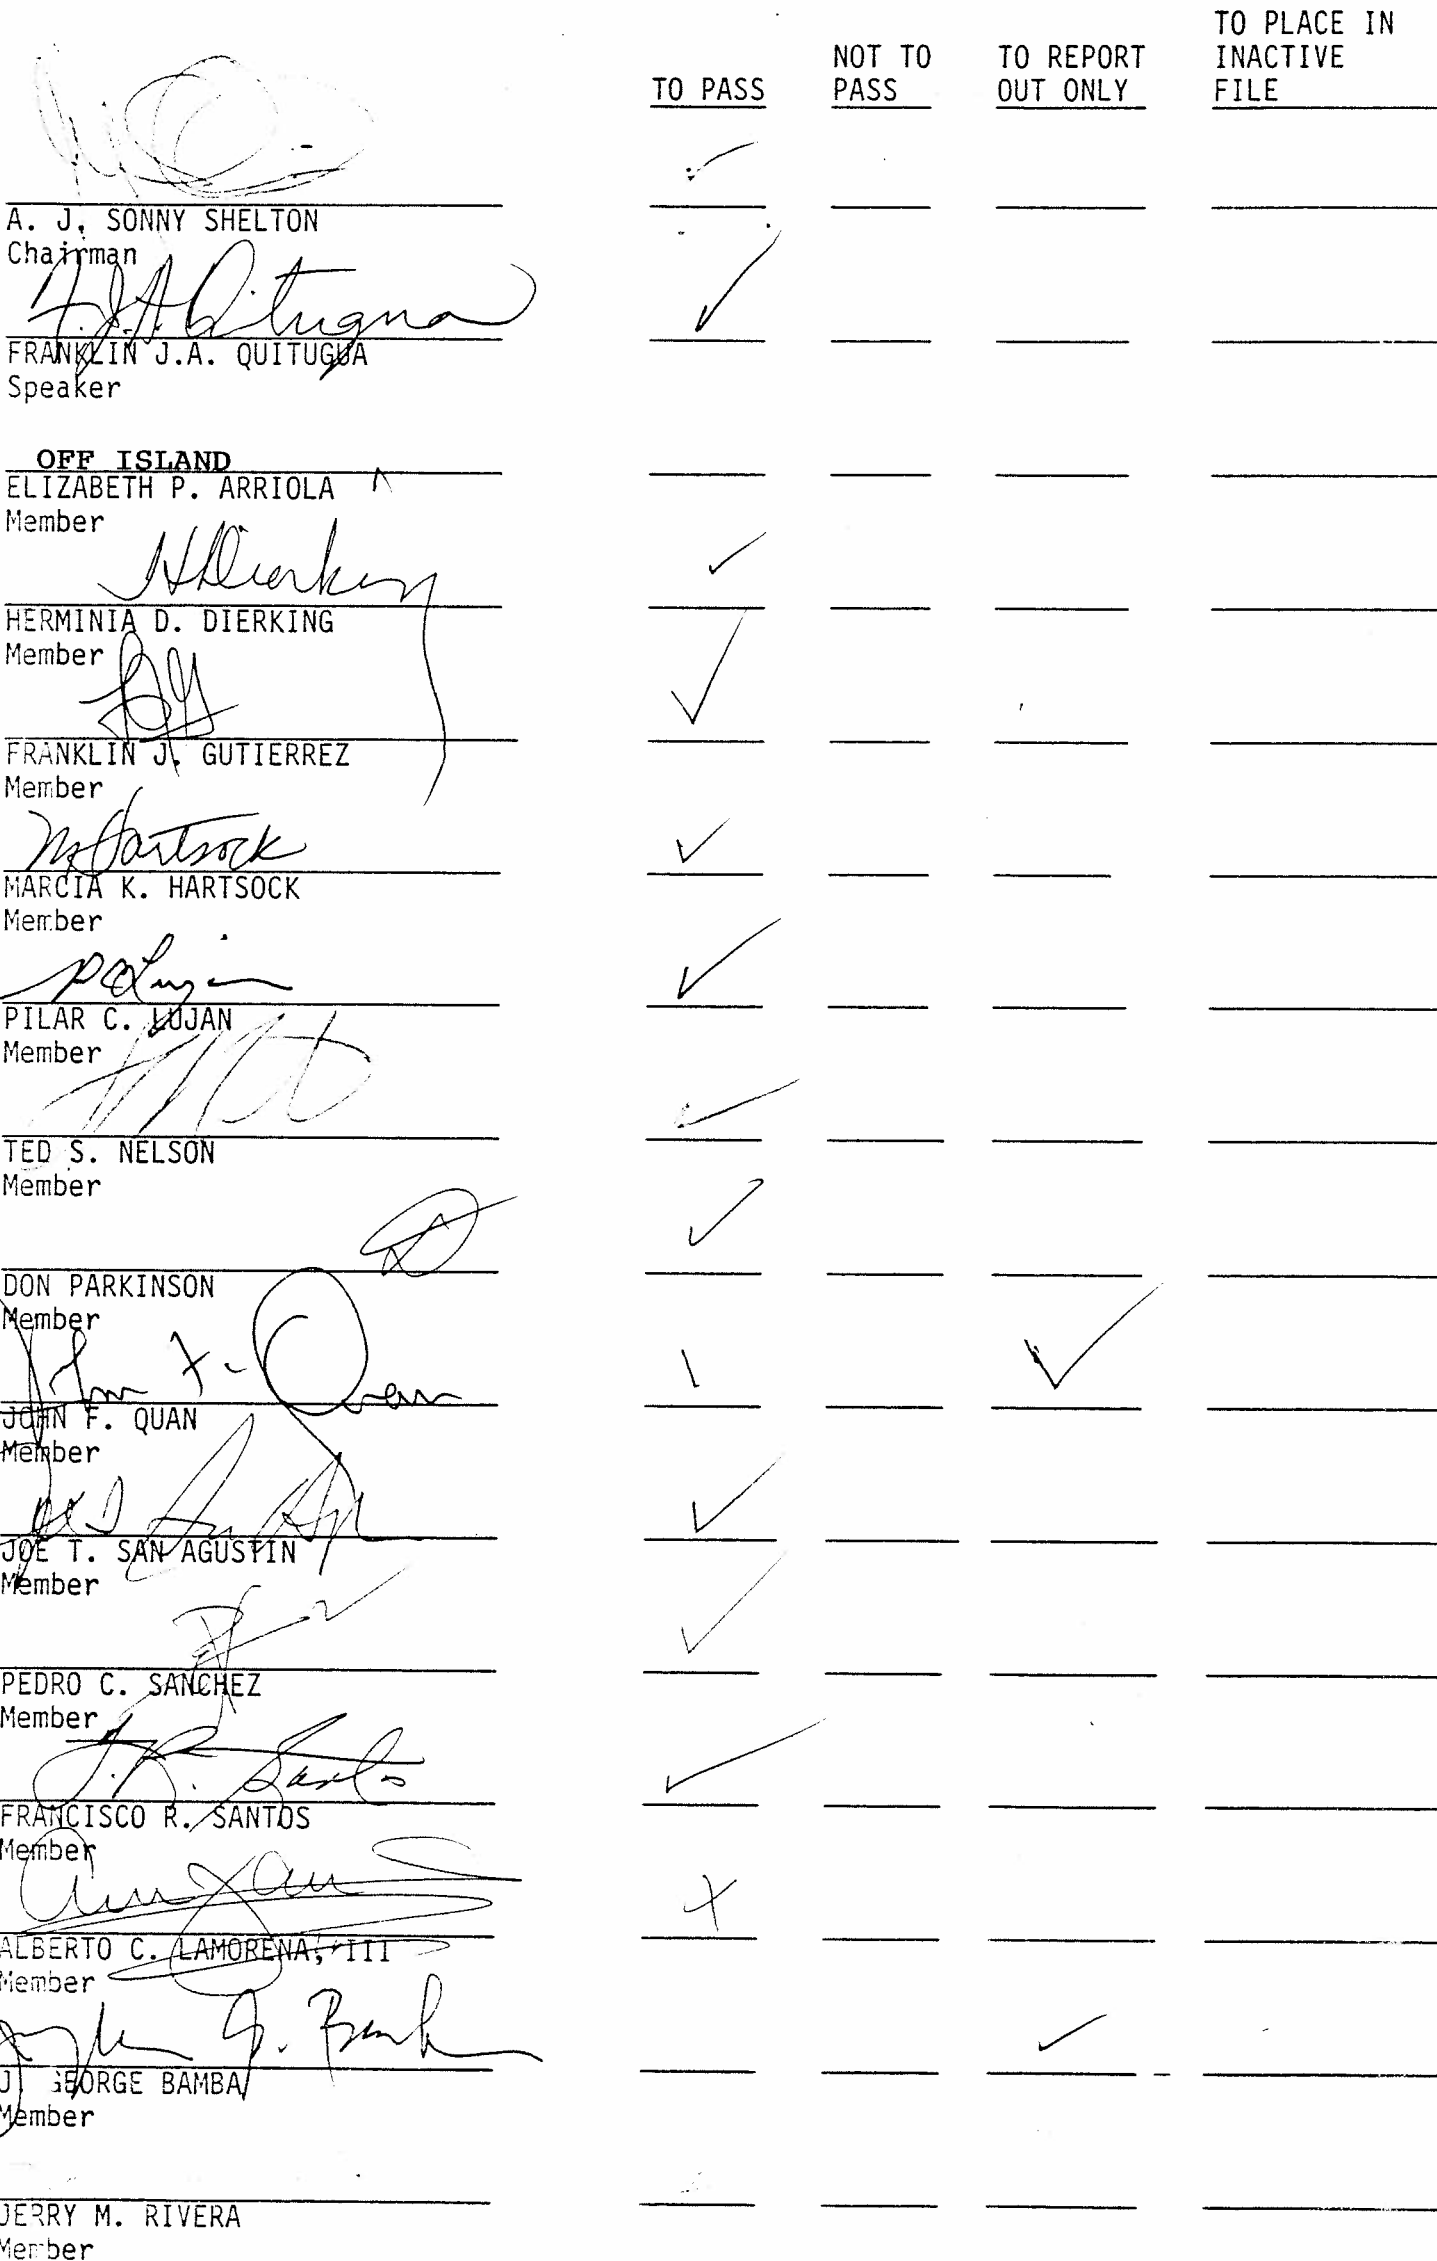 TO PASS NOT TO PASS TO REPORT OUT ONLY TO PLACE IN INACTIVE FILE
A. J. SONNY SHELTON
Chairman
F.J.A. Quitugua
FRANKLIN J.A. QUITUGUA
Speaker
OFF ISLAND
ELIZABETH P. ARRIOLA
Member
HDierking
HERMINIA D. DIERKING
Member
FRANKLIN J. GUTIERREZ
Member
M Hartsock
MARCIA K. HARTSOCK
Member
PCLujan
PILAR C. LUJAN
Member
TED S. NELSON
Member
DON PARKINSON
Member
John F. Quan
JOHN F. QUAN
Member
JOE T. SAN AGUSTIN
Member
PEDRO C. SANCHEZ
Member
F.R. Santos
FRANCISCO R. SANTOS
Member
ALBERTO C. LAMORENA, III
Member
J. GEORGE BAMBA
Member
JERRY M. RIVERA
Member